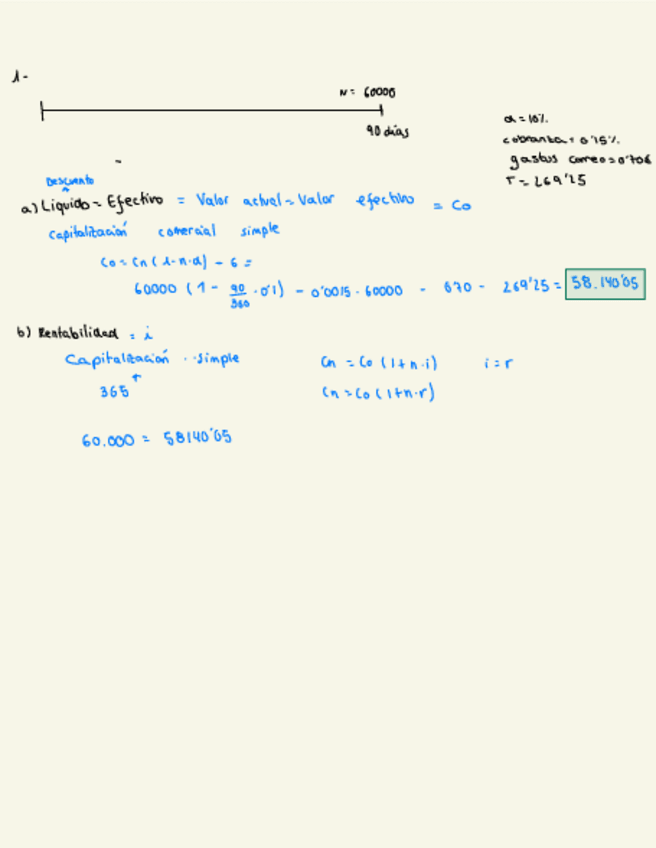 1-
N = 60000
90 días
d = 10%
cobranza = 0'15%
gastos correo = 0'70€
T = 269'25
Descuento
a) Líquido = Efectivo = Valor actual = Valor efectivo = Co
capitalización comercial simple
Co = Cn (1-n·d) - G =
60000 (1 - 90/360 · 0'1) - 0'0015 · 60000 - 0'70 - 269'25 = 58.140'05
b) Rentabilidad = i
Capitalización simple
Cn = Co (1+n·i) i = r
365
Cn = Co (1+n·r)
60.000 = 58140'05